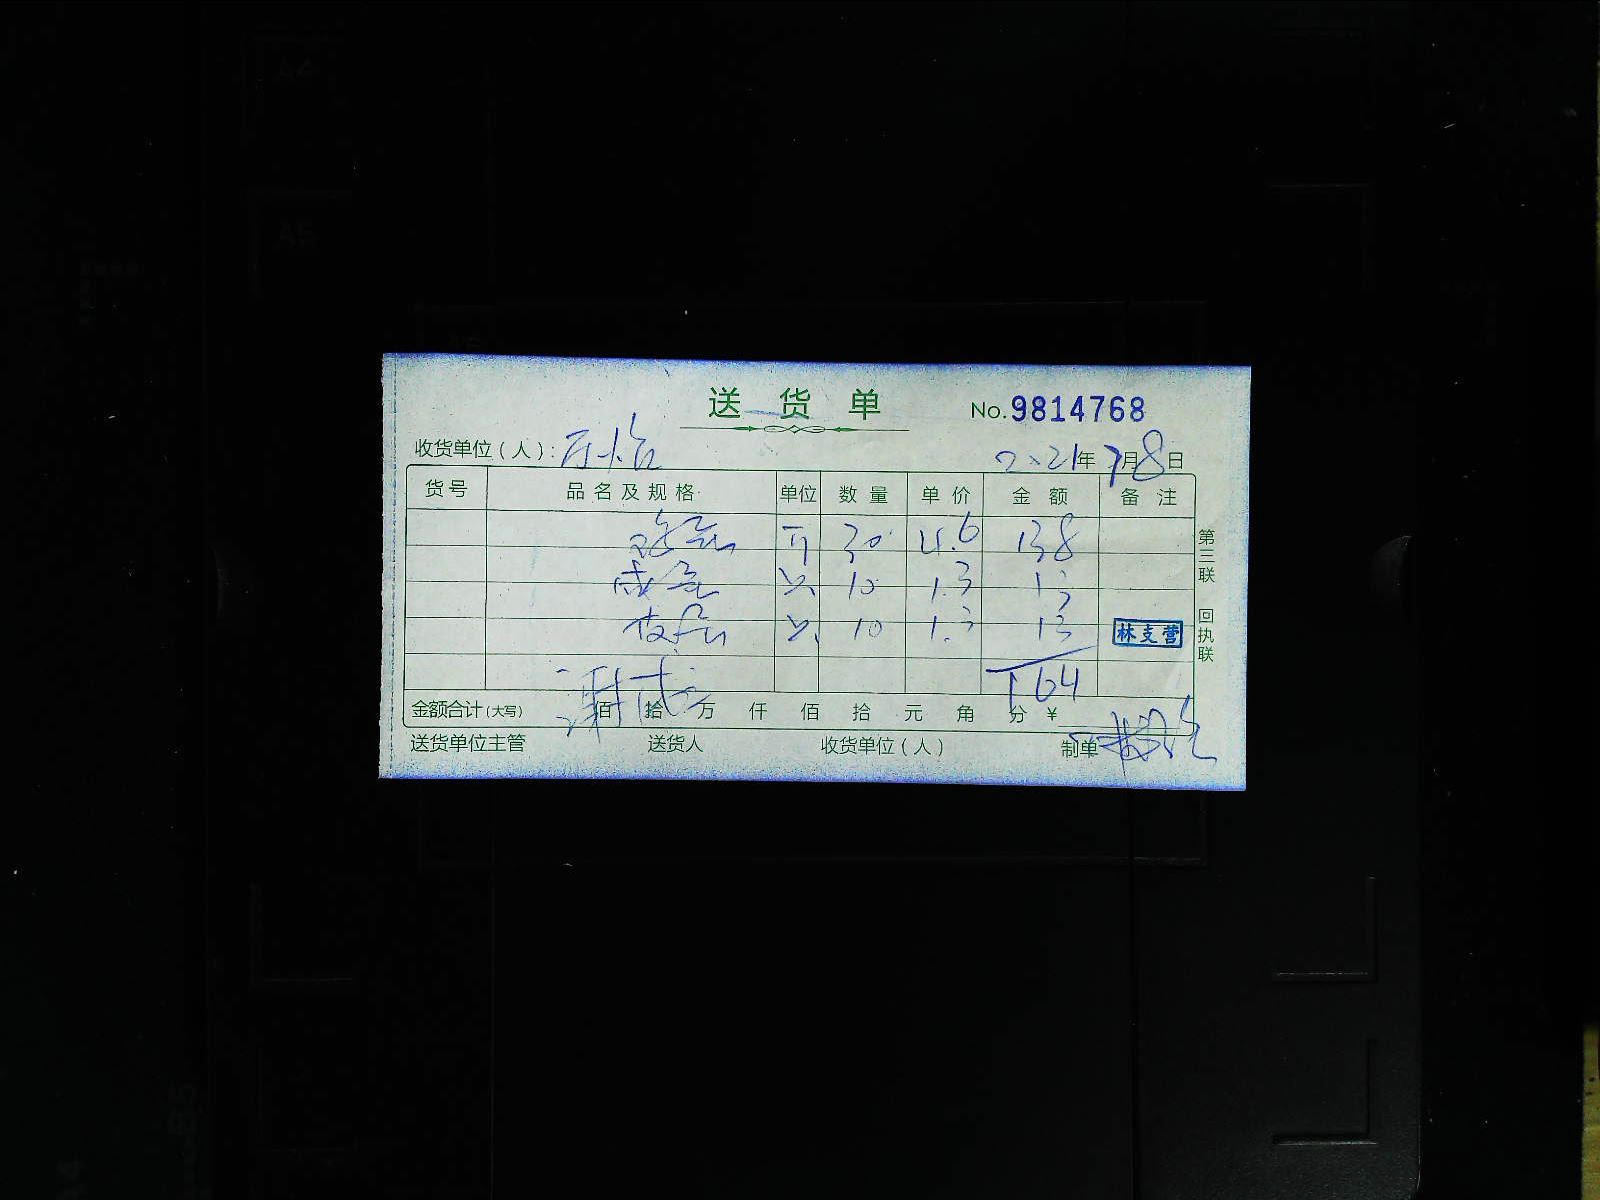 送货单 No.9814768
收货单位(人): 2021年7月8日
货号 品名及规格 单位 数量 单价 金额 备注
鸡蛋 斤 30 4.6 138
咸蛋 只 10 1.3 13
皮蛋 只 10 1.3 13
林支营
164
金额合计(大写) 佰拾万仟佰拾元角分 ¥
送货单位主管 送货人 收货单位(人) 制单
第三联 回执联